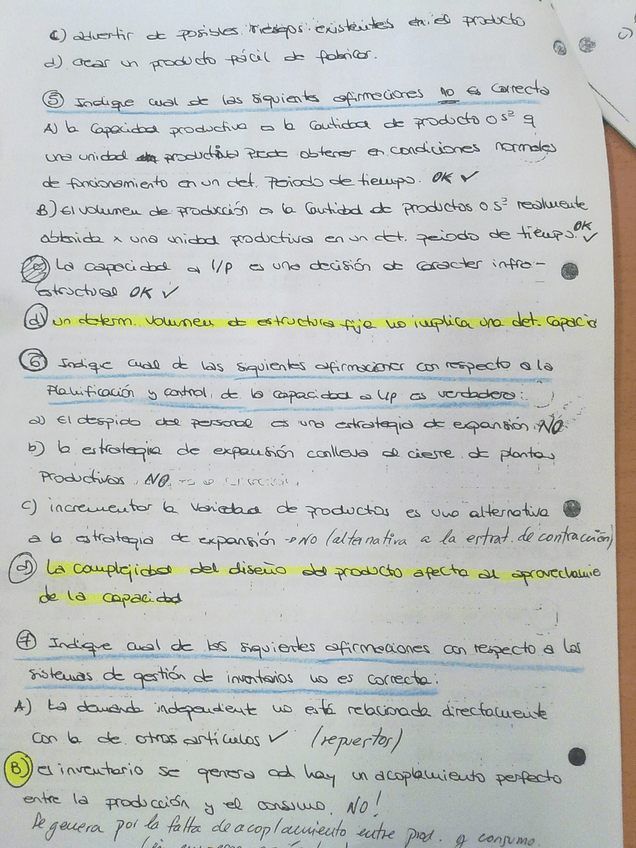 c) advertir de posibles riesgos existentes en el producto
d) crear un producto fácil de fabricar.
⑤ Indique cual de las siguientes afirmaciones no es correcta
A) la capacidad productiva es la cantidad de producto o s² q
una unidad productiva puede obtener en condiciones normales
de funcionamiento en un det. periodo de tiempo. OK ✓
B) El volumen de producción es la cantidad de productos o s² realmente
obtenida x una unidad productiva en un det. periodo de tiempo. OK ✓
La capacidad a l/p es una decisión de caracter infra-
estructural OK ✓
d) un determ. volumen de estructura fija no implica una det. capacid
⑥ Indique cual de las siguientes afirmaciones con respecto a la
Planificación y control de la capacidad a l/p es verdadera:
a) El despido del personal es una estrategia de expansión. NO
b) la estrategia de expansión conlleva al cierre de plantas
Productivas. NO
c) incrementar la variedad de productos es una alternativa
a la estrategia de expansión → NO (alternativa a la estrat. de contracción)
d) La complejidad del diseño del producto afecta al aprovechamie
de la capacidad
⑦ Indique cual de las siguientes afirmaciones con respecto a los
sistemas de gestión de inventarios no es correcta:
A) La demanda independiente no está relacionada directamente
con la de otros artículos ✓ (repuestos)
B) el inventario se genera cd hay un acoplamiento perfecto
entre la producción y el consumo. NO!
Se genera por la falta de acoplamiento entre prod. y consumo.